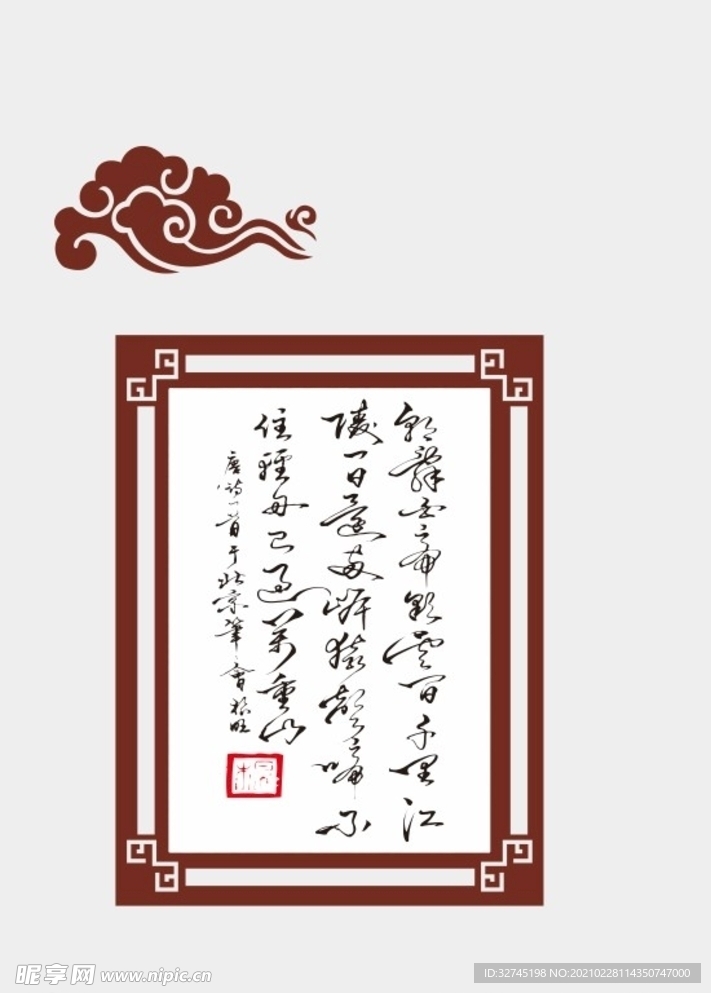 朝辭白帝彩雲間千里江
陵一日還兩岸猿聲啼不
住輕舟已過萬重山
唐詩一首于北京筆會
昵享网 www.nipic.cn
ID:32745198 NO:20210228114350747000